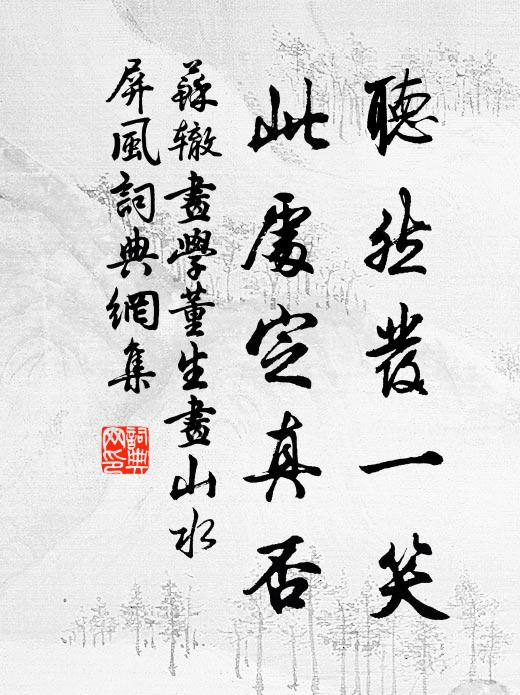 聽然發一笑
此處定真否
蘇辙畫學董生畫山水
屏風詞典網集
詞典
网印